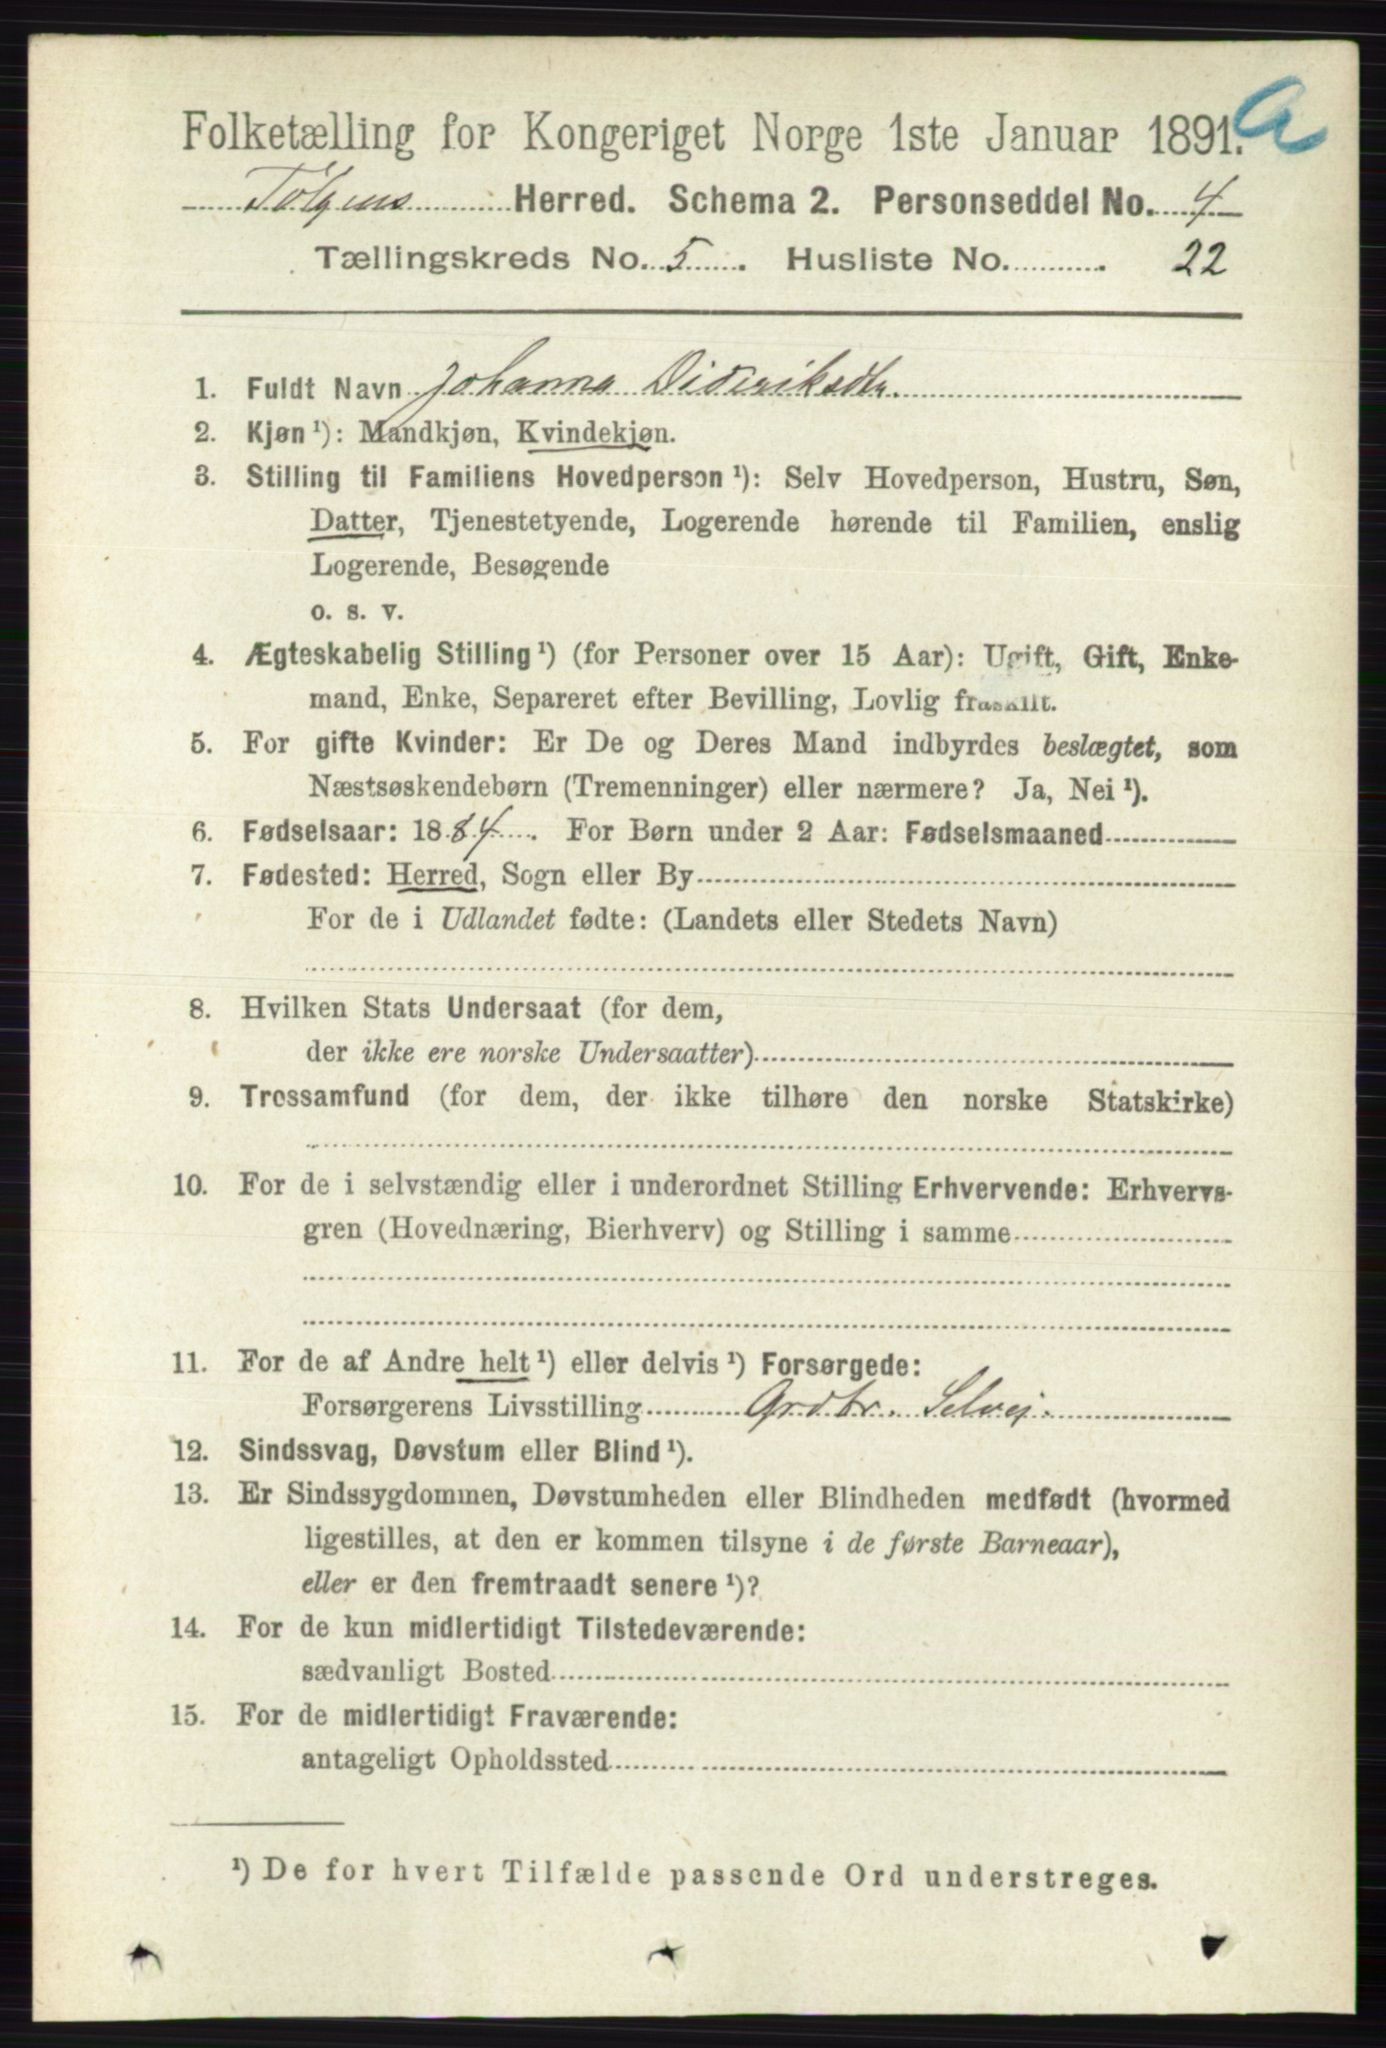 Folketælling for Kongeriget Norge 1ste Januar 1891. a
Tolgens Herred. Schema 2. Personseddel No. 4
Tællingskreds No. 5. Husliste No. 22
1. Fuldt Navn Johanna Dideriksdtr.
2. Kjøn¹): Mandkjøn, Kvindekjøn.
3. Stilling til Familiens Hovedperson¹): Selv Hovedperson, Hustru, Søn,
Datter, Tjenestetyende, Logerende hørende til Familien, enslig
Logerende, Besøgende
o. s. v.
4. Ægteskabelig Stilling¹) (for Personer over 15 Aar): Ugift, Gift, Enke-
mand, Enke, Separeret efter Bevilling, Lovlig fraskilt.
5. For gifte Kvinder: Er De og Deres Mand indbyrdes beslægtet, som
Næstsøskendebørn (Tremenninger) eller nærmere? Ja, Nei¹).
6. Fødselsaar: 1884. For Børn under 2 Aar: Fødselsmaaned
7. Fødested: Herred, Sogn eller By
For de i Udlandet fødte: (Landets eller Stedets Navn)
8. Hvilken Stats Undersaat (for dem,
der ikke ere norske Undersaatter)
9. Trossamfund (for dem, der ikke tilhøre den norske Statskirke)
10. For de i selvstændig eller i underordnet Stilling Erhvervende: Erhvervs-
gren (Hovednæring, Bierhverv) og Stilling i samme
11. For de af Andre helt¹) eller delvis¹) Forsørgede:
Forsørgerens Livsstilling Grdbr. Selvej.
12. Sindssvag, Døvstum eller Blind¹).
13. Er Sindssygdommen, Døvstumheden eller Blindheden medfødt (hvormed
ligestilles, at den er kommen tilsyne i de første Barneaar),
eller er den fremtraadt senere¹)?
14. For de kun midlertidigt Tilstedeværende:
sædvanligt Bosted
15. For de midlertidigt Fraværende:
antageligt Opholdssted
¹) De for hvert Tilfælde passende Ord understreges.